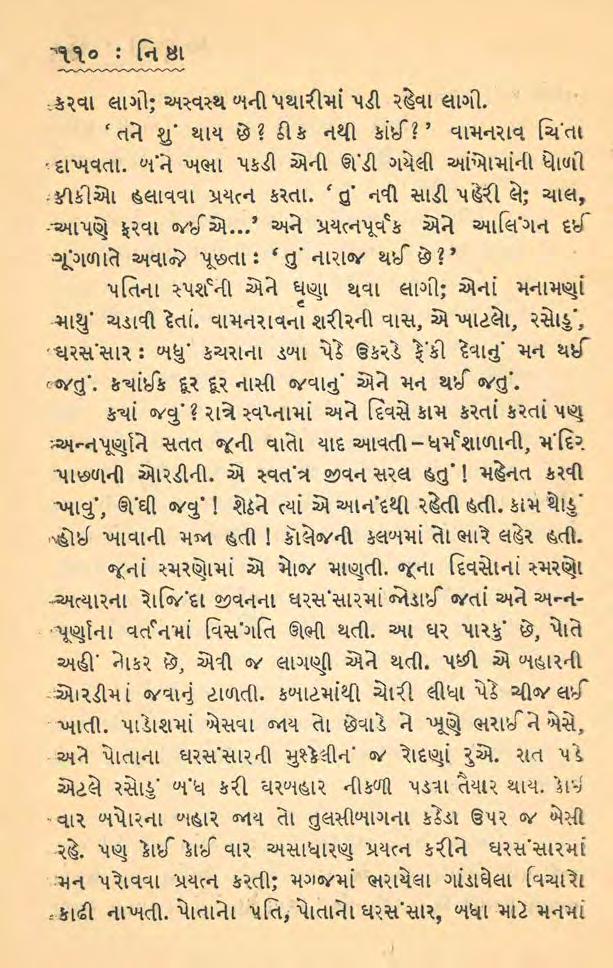 ૧૧૦ : નિષ્ઠા
કરવા લાગી; અસ્વસ્થ બની પથારીમાં પડી રહેવા લાગી.
‘તને શું થાય છે? ઠીક નથી કાંઈ?’ વામનરાવ ચિંતા
દાખવતા. બંને ખભા પકડી એની ઊંડી ગયેલી આંખોમાંની ધોળી
કીકીઓ હલાવવા પ્રયત્ન કરતા. ‘તું નવી સાડી પહેરી લે; ચાલ,
આપણે ફરવા જઈએ...’ અને પ્રયત્નપૂર્વક એને આલિંગન દઈ
ગૂંગળાતે અવાજે પૂછતા : ‘તું નારાજ થઈ છે?’
પતિના સ્પર્શની એને ઘૃણા થવા લાગી; એનાં મનામણાં
માથું ચડાવી દેતાં. વામનરાવનાં શરીરની વાસ, એ ખાટલો, રસોડું,
ઘરસંસાર : બધું કચરાના ડબા પેઠે ઉકરડે ફેંકી દેવાનું મન થઈ
જતું. કયાંઈક દૂર દૂર નાસી જવાનું એને મન થઈ જતું.
કયાં જવું? રાત્રે સ્વપ્નામાં અને દિવસે કામ કરતાં કરતાં પણ
અન્નપૂર્ણાને સતત જૂની વાતો યાદ આવતી – ધર્મશાળાની, મંદિર
પાછળની ઓરડીની. એ સ્વતંત્ર જીવન સરલ હતું! મહેનત કરવી
ખાવું, ઊંઘી જવું! શેઠને ત્યાં એ આનંદથી રહેતી હતી. કામ થોડું
હોઈ ખાવાની મજા હતી! કૉલેજની કલબમાં તો ભારે લહેર હતી.
જૂનાં સ્મરણોમાં એ મોજ માણતી. જૂના દિવસોનાં સ્મરણો
અત્યારના રોજિંદા જીવનના ઘરસંસારમાં જોડાઈ જતાં અને અન્ન-
પૂર્ણાના વર્તનમાં વિસંગતિ ઊભી થતી. આ ઘર પારકું છે, પોતે
અહીં નોકર છે, એવી જ લાગણી એને થતી. પછી એ બહારની
ઓરડીમાં જવાનું ટાળતી. કબાટમાંથી ચોરી લીધા પેઠે ચીજ લઈ
ખાતી. પાડોશમાં બેસવા જાય તો છેવાડે ને ખૂણે ભરાઈ ને બેસે,
અને પોતાના ઘરસંસારની મુશ્કેલીનાં જ રોદણાં રુએ. રાત પડે
એટલે રસોડું બંધ કરી ઘરબહાર નીકળી પડવા તૈયાર થાય. કોઈ
વાર બપોરના બહાર જાય તો તુલસીબાગના કઠેડા ઉપર જ બેસી
રહે. પણ કોઈ કોઈ વાર અસાધારણ પ્રયત્ન કરીને ઘરસંસારમાં
મન પરોવવા પ્રયત્ન કરતી; મગજમાં ભરાયેલા ગાંડાઘેલા વિચારો
કાઢી નાખતી. પોતાનો પતિ, પોતાનો ઘરસંસાર, બધા માટે મનમાં